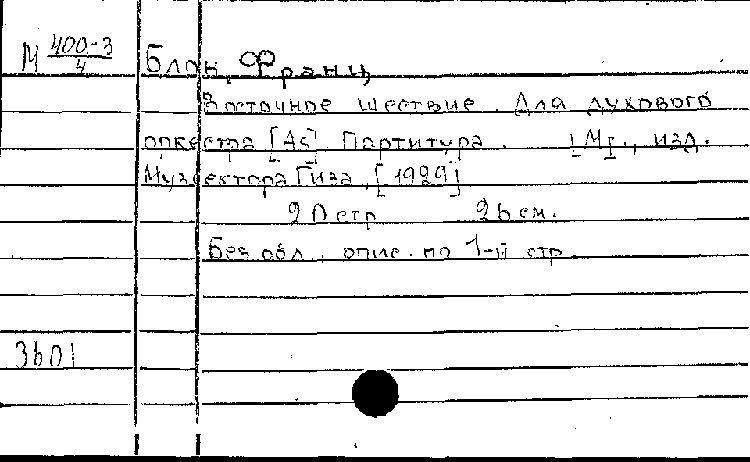 М 400-3/4 Блон, Франц
Восточное шествие. Для духового
оркестра [As]. Партитура. [М], изд.
Музсектора Гиза, [1929]
20 стр 26 см.
Без обл., опис. по 1-й стр.
3601